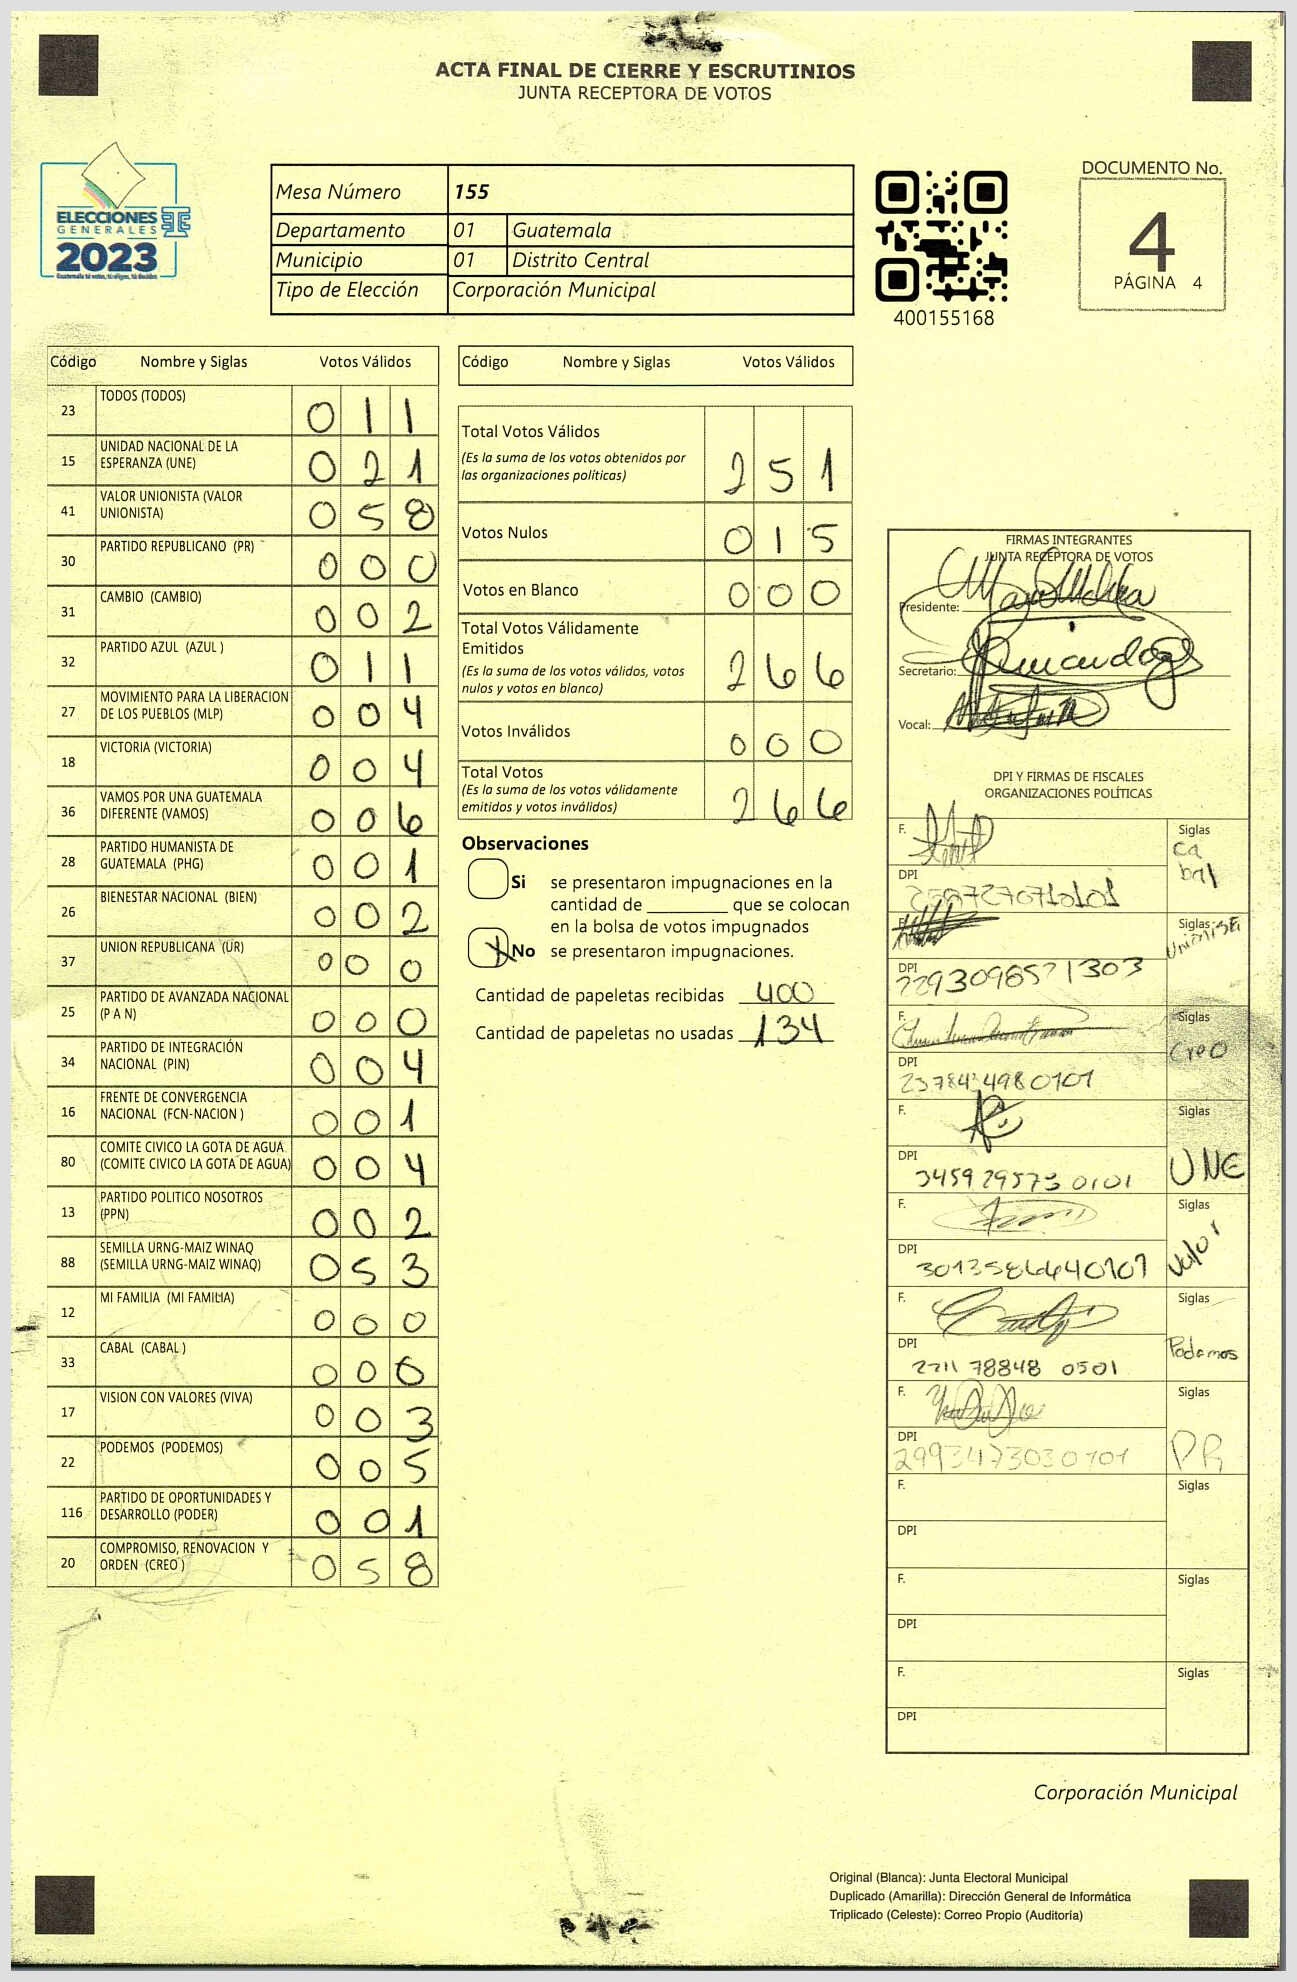 ACTA FINAL DE CIERRE Y ESCRUTINIOS
JUNTA RECEPTORA DE VOTOS
ELECCIONES
GENERALES
2023
Guatemala tú votas, tú eliges, tú decides
Mesa Número 155
Departamento 01 Guatemala
Municipio 01 Distrito Central
Tipo de Elección Corporación Municipal
400155168
DOCUMENTO No.
4
PÁGINA 4
Código Nombre y Siglas Votos Válidos
23 TODOS (TODOS) 0 1 1
15 UNIDAD NACIONAL DE LA
ESPERANZA (UNE) 0 2 1
41 VALOR UNIONISTA (VALOR
UNIONISTA) 0 5 8
30 PARTIDO REPUBLICANO (PR) 0 0 0
31 CAMBIO (CAMBIO) 0 0 2
32 PARTIDO AZUL (AZUL ) 0 1 1
27 MOVIMIENTO PARA LA LIBERACION
DE LOS PUEBLOS (MLP) 0 0 4
18 VICTORIA (VICTORIA) 0 0 4
36 VAMOS POR UNA GUATEMALA
DIFERENTE (VAMOS) 0 0 6
28 PARTIDO HUMANISTA DE
GUATEMALA (PHG) 0 0 1
26 BIENESTAR NACIONAL (BIEN) 0 0 2
37 UNION REPUBLICANA (UR) 0 0 0
25 PARTIDO DE AVANZADA NACIONAL
(P A N) 0 0 0
34 PARTIDO DE INTEGRACIÓN
NACIONAL (PIN) 0 0 4
16 FRENTE DE CONVERGENCIA
NACIONAL (FCN-NACION ) 0 0 1
80 COMITE CIVICO LA GOTA DE AGUA
(COMITE CIVICO LA GOTA DE AGUA) 0 0 4
13 PARTIDO POLITICO NOSOTROS
(PPN) 0 0 2
88 SEMILLA URNG-MAIZ WINAQ
(SEMILLA URNG-MAIZ WINAQ) 0 5 3
12 MI FAMILIA (MI FAMILIA) 0 0 0
33 CABAL (CABAL ) 0 0
17 VISION CON VALORES (VIVA) 0 0 3
22 PODEMOS (PODEMOS) 0 0 5
116 PARTIDO DE OPORTUNIDADES Y
DESARROLLO (PODER) 0 0 1
20 COMPROMISO, RENOVACION Y
ORDEN (CREO ) 0 5 8
Código Nombre y Siglas Votos Válidos
Total Votos Válidos
(Es la suma de los votos obtenidos por
las organizaciones políticas) 2 5 1
Votos Nulos 0 1 5
Votos en Blanco 0 0 0
Total Votos Válidamente
Emitidos
(Es la suma de los votos válidos, votos
nulos y votos en blanco) 2 6 6
Votos Inválidos 0 0 0
Total Votos
(Es la suma de los votos válidamente
emitidos y votos inválidos) 2 6 6
Observaciones
Si se presentaron impugnaciones en la
cantidad de ________ que se colocan
en la bolsa de votos impugnados
X No se presentaron impugnaciones.
Cantidad de papeletas recibidas 400
Cantidad de papeletas no usadas 134
FIRMAS INTEGRANTES
JUNTA RECEPTORA DE VOTOS
Presidente:
Secretario:
Vocal:
DPI Y FIRMAS DE FISCALES
ORGANIZACIONES POLÍTICAS
F. Siglas
Cabal
DPI
F. Siglas
DPI 2293098571303
F. Siglas
Creo
DPI
F. Siglas
UNE
DPI 3459 29573 0101
F. Siglas
Valor
DPI
F. Siglas
Podemos
DPI 2211 78848 0501
F. Siglas
PR
DPI 2993473030101
F. Siglas
DPI
F. Siglas
DPI
F. Siglas
DPI
Corporación Municipal
Original (Blanca): Junta Electoral Municipal
Duplicado (Amarilla): Dirección General de Informática
Triplicado (Celeste): Correo Propio (Auditoría)